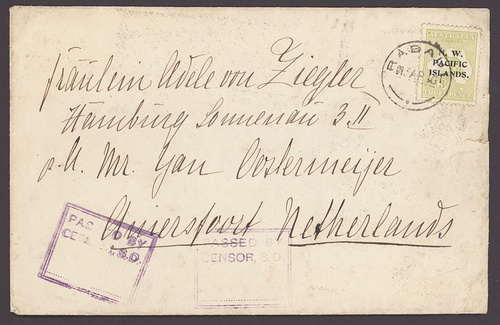 AUSTRALIA
N. W.
PACIFIC
ISLANDS.
RABAUL
Fräulein Adele von Ziegler
Hamburg Sonnenau 3 II
p. A. Mr. Jan Oostermeijer
Amersfoort Netherlands
PASSED BY
CENSOR, S.O.
PASSED BY
CENSOR, S.O.